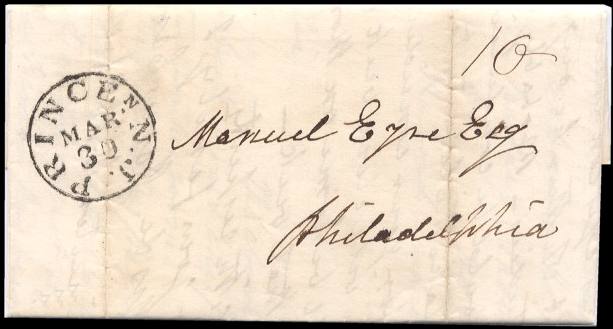 10
PRINCEN N.J.
MAR
30
Manuel Eyre Esq
Philadelphia